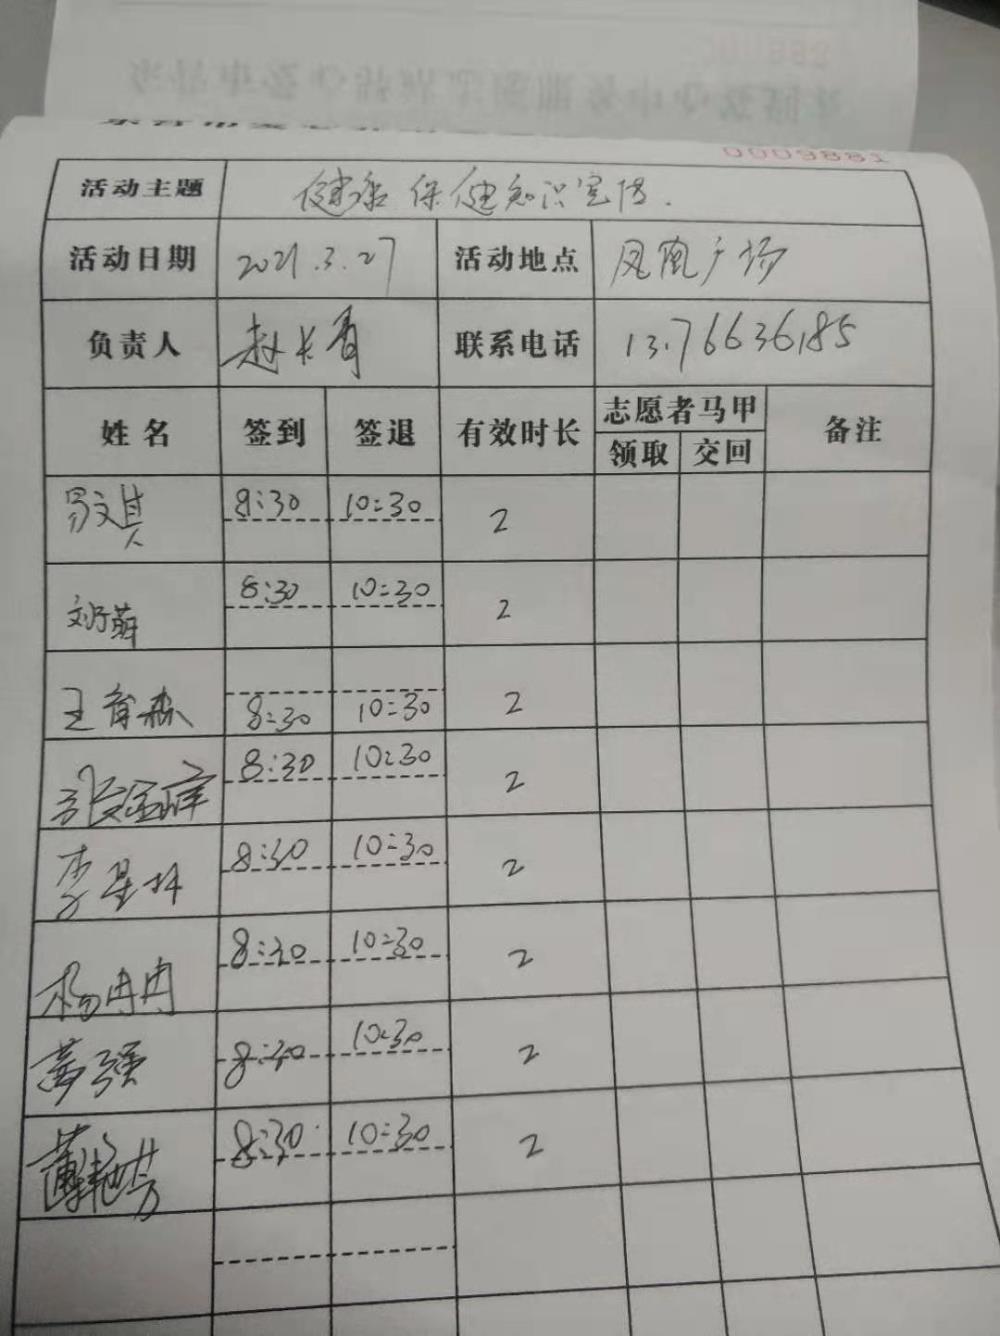 0009881
活动主题 健康保健知识宣传.
活动日期 2021.3.27 活动地点 凤凰广场
负责人 赵长青 联系电话 13766636185
姓名 签到 签退 有效时长 志愿者马甲 备注
领取 交回
易文其 8:30 10:30 2
刘萌 8:30 10:30 2
王育森 8:30 10:30 2
8:30 10:30 2
李星林 8:30 10:30 2
杨冉冉 8:30 10:30 2
黄强 8:30 10:30 2
8:30 10:30 2